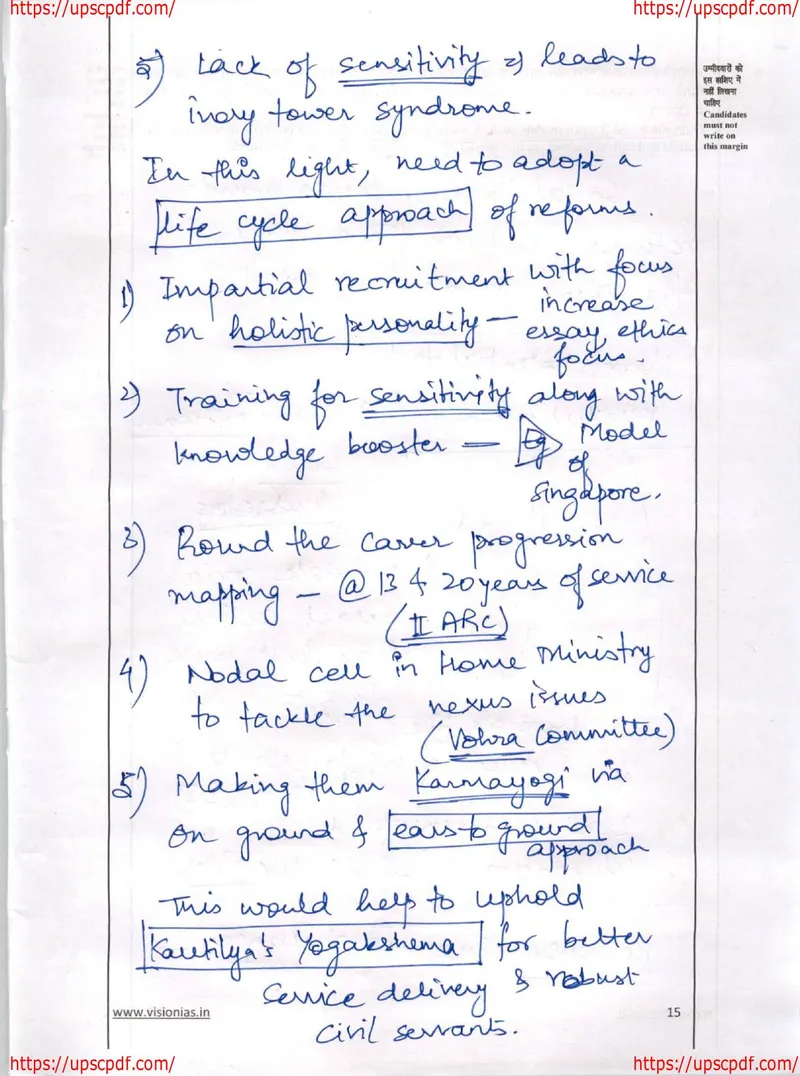 https://upscpdf.com/ https://upscpdf.com/
Lack of sensitivity => leads to
ivory tower syndrome.
In this light, need to adopt a
life cycle approach of reforms.
1) Impartial recruitment with focus
on holistic personality — increase
essay, ethics
focus.
2) Training for sensitivity along with
knowledge booster — Eg Model
of
Singapore.
3) Round the career progression
mapping — @ 13 & 20 years of service
(II ARC)
4) Nodal cell in Home Ministry
to tackle the nexus issues
(Vohra Committee)
5) Making them Karmayogi via
on ground & ears to ground
approach
This would help to uphold
Kautilya's Yogakshema for better
service delivery & robust
civil servants.
उम्मीदवारों को
इस हाशिए में
नहीं लिखना
चाहिए
Candidates
must not
write on
this margin
www.visionias.in 15
https://upscpdf.com/ https://upscpdf.com/